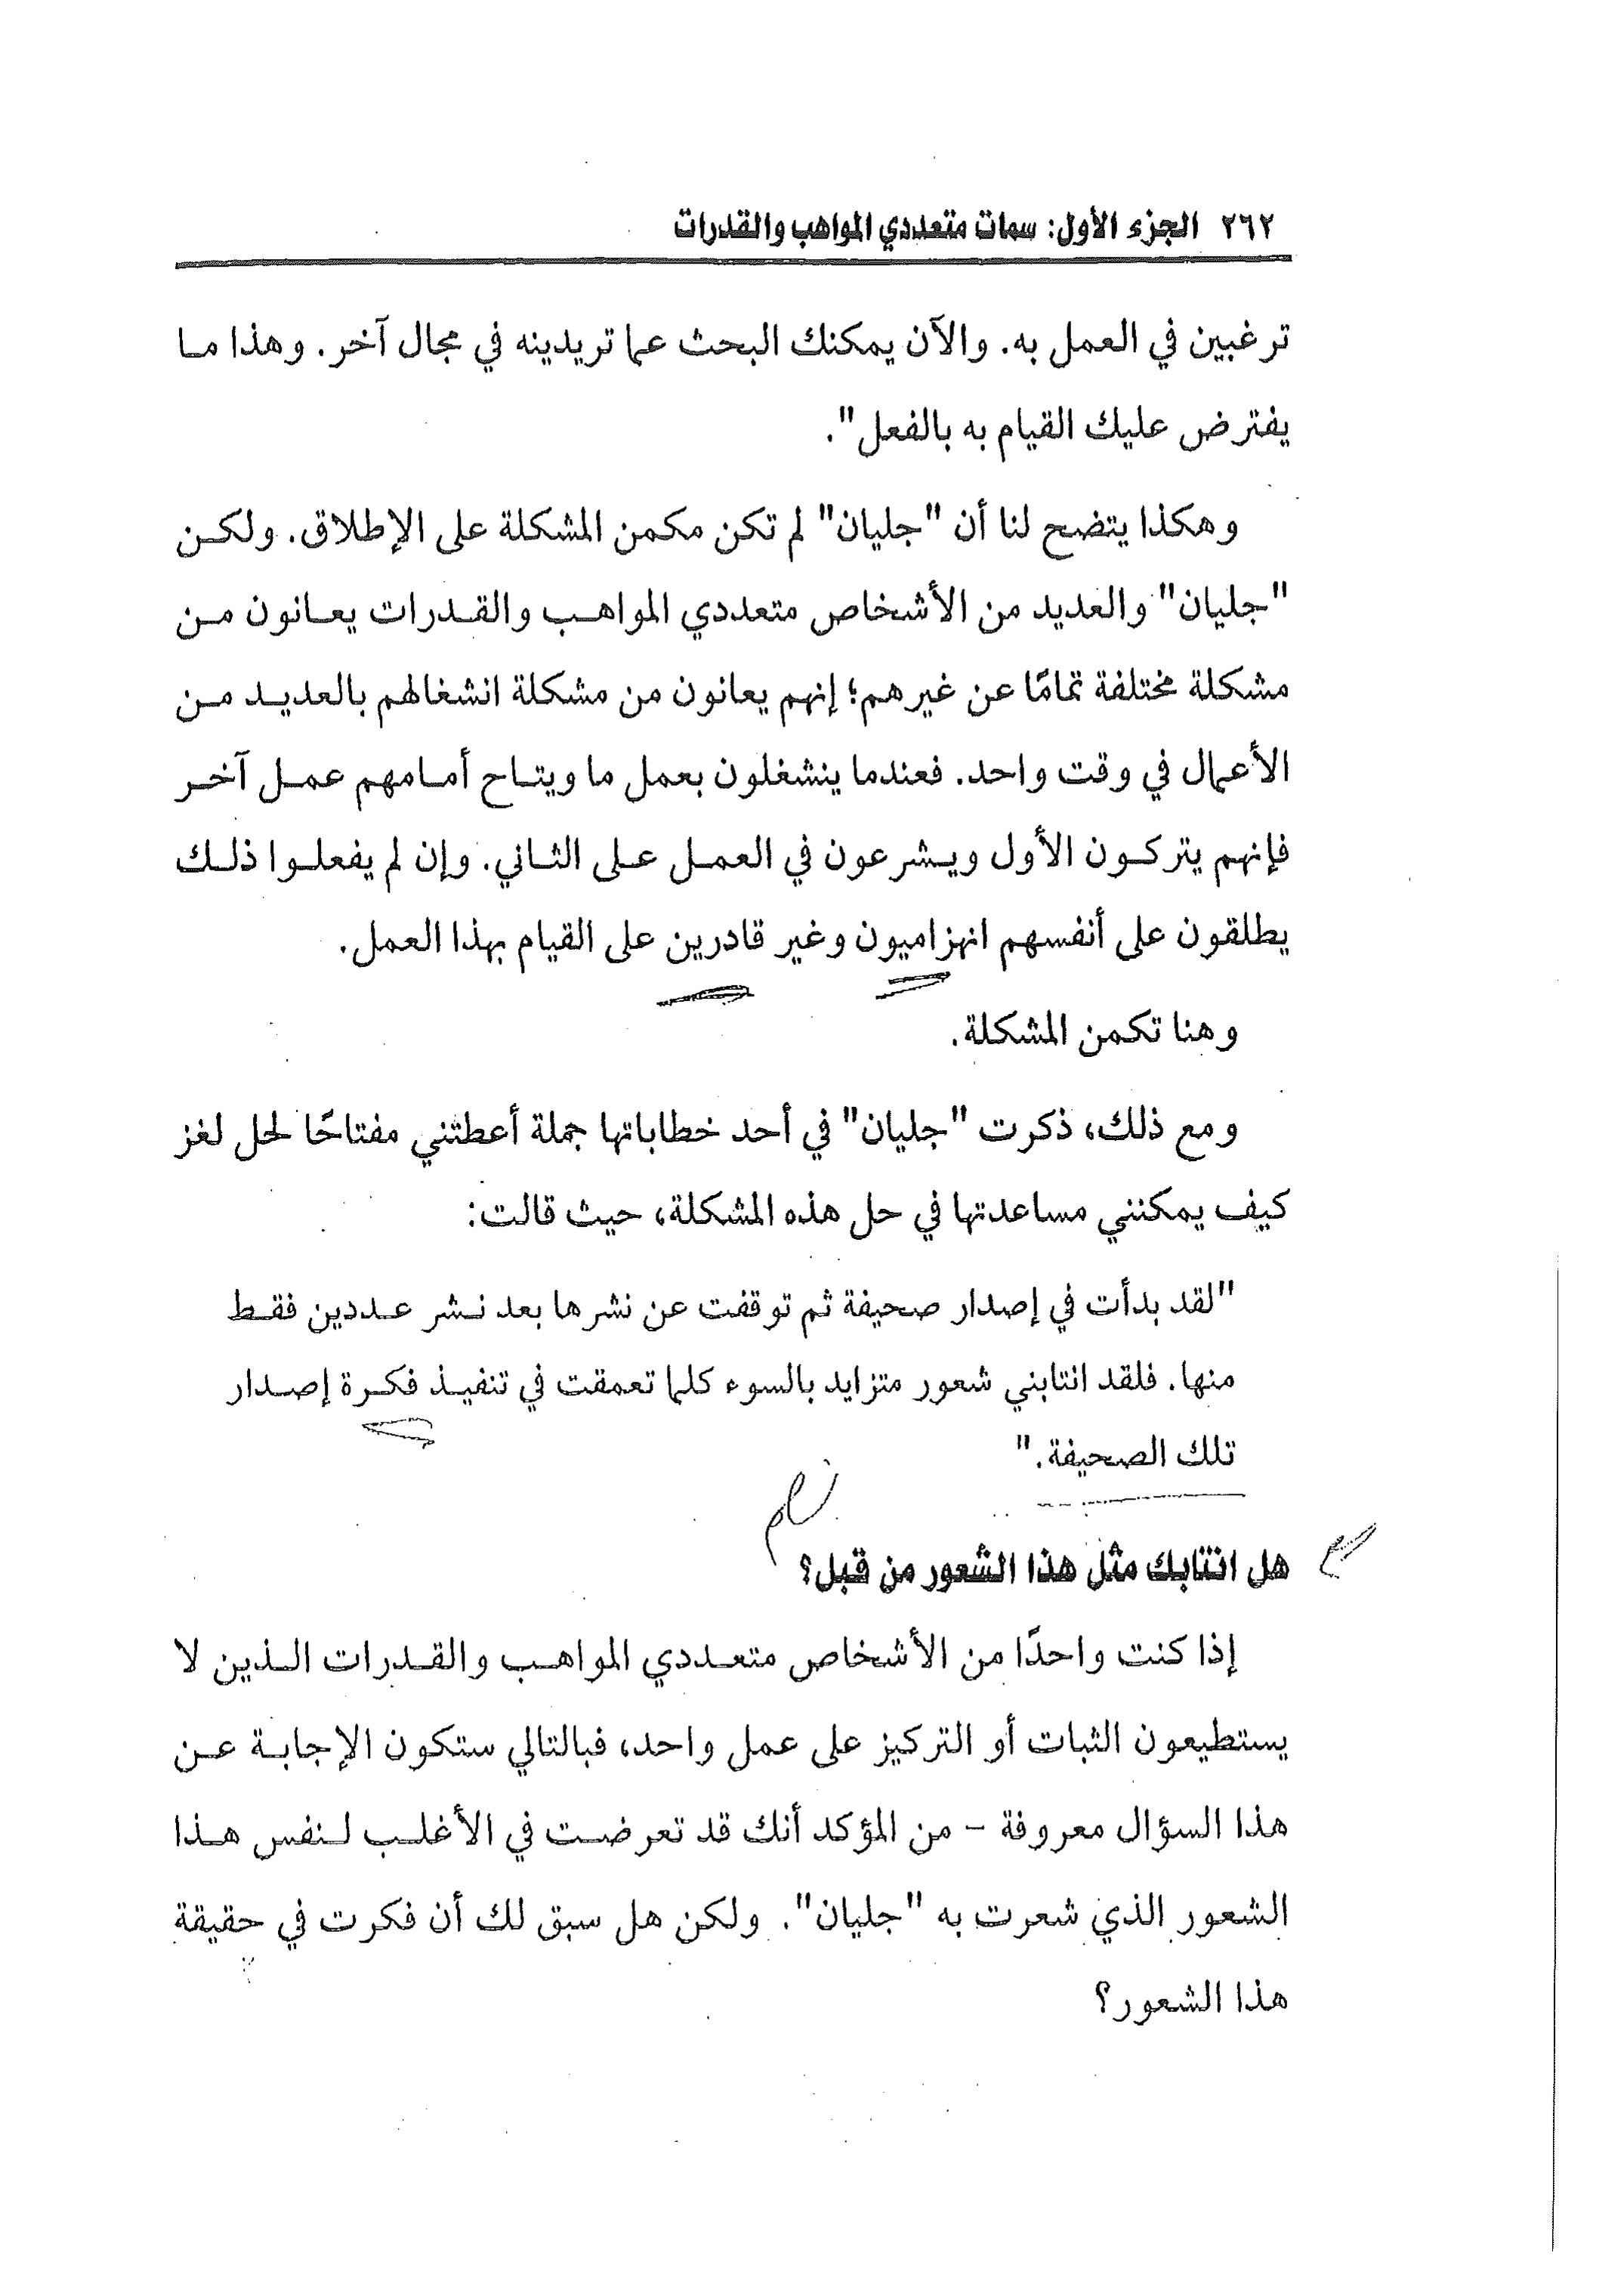 ٢٦٢ الجزء الأول: سمات متعددي المواهب والقدرات
ترغبين في العمل به. والآن يمكنك البحث عما تريدينه في مجال آخر. وهذا ما
يفترض عليك القيام به بالفعل".
وهكذا يتضح لنا أن "جليان" لم تكن مكمن المشكلة على الإطلاق. ولكن
"جليان" والعديد من الأشخاص متعددي المواهب والقدرات يعانون من
مشكلة مختلفة تمامًا عن غيرهم؛ إنهم يعانون من مشكلة انشغالهم بالعديد من
الأعمال في وقت واحد. فعندما ينشغلون بعمل ما ويتاح أمامهم عمل آخر
فإنهم يتركون الأول ويشرعون في العمل على الثاني. وإن لم يفعلوا ذلك
يطلقون على أنفسهم انهزاميون وغير قادرين على القيام بهذا العمل.
وهنا تكمن المشكلة.
ومع ذلك، ذكرت "جليان" في أحد خطاباتها جملة أعطتني مفتاحًا لحل لغز
كيف يمكنني مساعدتها في حل هذه المشكلة، حيث قالت:
"لقد بدأت في إصدار صحيفة ثم توقفت عن نشرها بعد نشر عددين فقط
منها. فلقد انتابني شعور متزايد بالسوء كلما تعمقت في تنفيذ فكرة إصدار
تلك الصحيفة."
نعم
هل انتابك مثل هذا الشعور من قبل؟
إذا كنت واحدًا من الأشخاص متعددي المواهب والقدرات الذين لا
يستطيعون الثبات أو التركيز على عمل واحد، فبالتالي ستكون الإجابة عن
هذا السؤال معروفة - من المؤكد أنك قد تعرضت في الأغلب لنفس هذا
الشعور الذي شعرت به "جليان". ولكن هل سبق لك أن فكرت في حقيقة
هذا الشعور؟